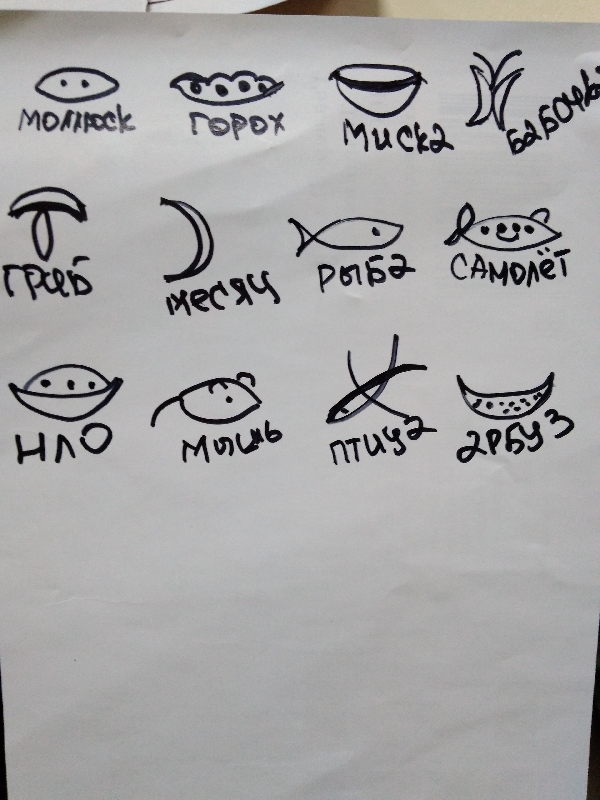 МОЛЛЮСК ГОРОХ МИСКА БАБОЧКА
ГРИБ МЕСЯЦ РЫБА САМОЛЁТ
НЛО МЫШЬ ПТИЦА АРБУЗ